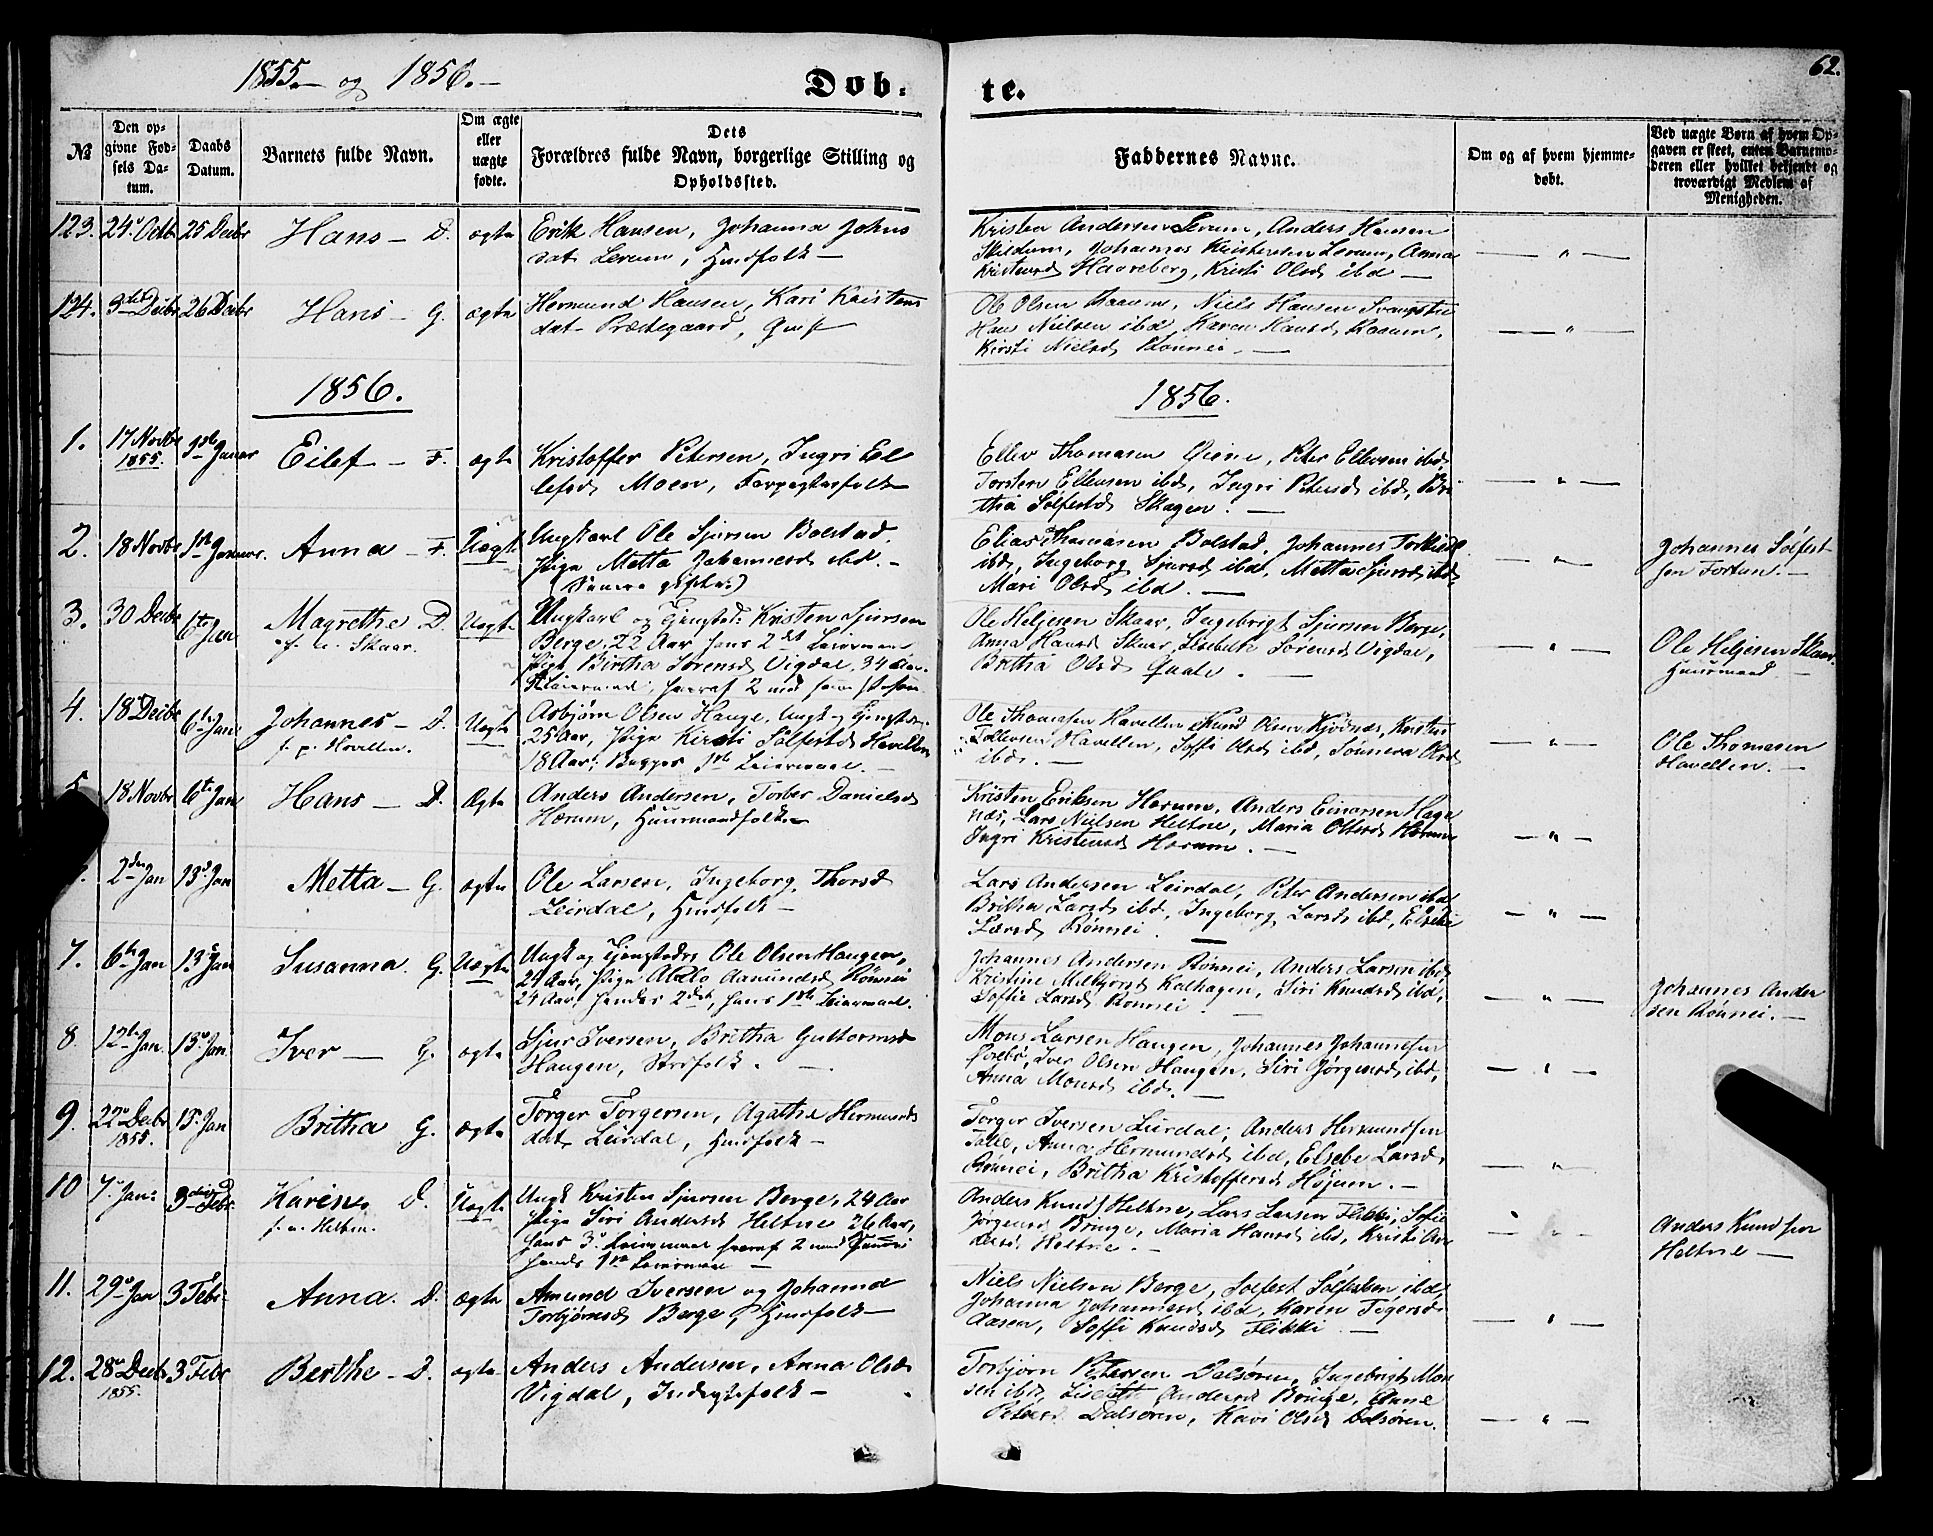 1855 og 1856.
Døb-
te.
62.
№
Den op-
givne Fød-
sels Da-
tum.
Daabs
Datum.
Barnets fulde Navn.
Om ægte
eller
uægte
fødte.
Dets
Forældres fulde Navn, borgerlige Stilling og
Opholdssted.
Faddernes Navne.
Om og af hvem hjemme-
døbt.
Ved uægte Børn af hvem Op-
gaven er skeet, enten Barnemo-
deren eller hvilket bekjendt og
troværdigt Medlem af
Menigheden.
123. 24 Octb 25 Decbr Hans – D. ægte Erik Hansen, Johanna Johns
dat Lerum, Huusfolk –
Kristen Andersen Lerum, Anders Hansen
Skildum, Johannes Kristensen Lerum, Anna
Kristensd Haaveberg, Kristi Olsd ibd –
124. 3die Decbr 26 Decbr Hans – G. ægte Hermund Hansen, Kari Kristens
dat Prestegaard,
Ole Olsen Kaarum, Niels Hansen
Hans Nielsen ibd, Karen Hansd Kaarum,
Kirsti Nielsd Rønnei. –
1856.
1856.
1. 17 Novbr
1855. 1ste Januar Eilef – F. ægte Kristoffer Petersen, Ingri El
lefsd Moen, Forpagterfolk
Ellev Thomasen Øiene, Peter Ellevsen ibd,
Torsten Ellevsen ibd, Ingri Petersd ibd, Bri
tha Sølfestd Skagen. –
2. 18 Novbr 1ste Januar. Anna – F. Uægte Ungkarl Ole Sjursen Bolstad,
Pige Metta Johannesd ibd. –
(Senere gifte.)
Elias Thomasen Bolstad, Johannes
ibd, Ingeborg Sjursd ibd, Metta Sjursd ibd,
Mari Olsd ibd. –
Johannes Sølfest
sen Fortun. –
3. 30 Decbr 6te Jan Magrethe D.
Skaar. Uægte Ungkarl og Kristen Sjursen
Berge, 22 Aar, hans 2det Leiermaal,
Pige Birtha Sørensd Vigdal, 34 Aar,
Leiermaal, heraf 2 med
Ole Heljesen Skaar, Ingebrigt Sjursen Berge,
Anna Hansd Skaar, Lisebeth Sørensd Vigdal,
Britha Olsd Qvale. –
Ole Heljesen Skaar
Huusmand –
4. 18 Decbr 6te Jan Johannes – D.
Hovellen. Uægte Asbjørn Olsen Hauge, Ungk og
25 Aar, Pige Kirsti Sølfestd Havellen
18 Aar; Begges 1ste Leiermaal. –
Ole Thomasen Havellen, Knud Olsen Kjødnæs, Kristen
Tollevsen Havellen, Soffi Olsd ibd, Sønneva Olsd
ibd. –
Ole Thomasen
Havellen. –
5. 18 Novbr 6te Jan Hans – D. Ægte Anders Andersen, Torber Danielsd
Hærum, Huusmandsfolk
Kristen Eriksen Harum, Anders Einarsen Hage
næs, Lars Nielsen Heltne, Maria Olsd Harum
Ingri Kristensd Harum. –
2den Jan 13d Jan Metta – G. ægte Ole Larsen, Ingeborg Thorsd
Leirdal, Huusfolk –
Lars Andersen Leirdal, Peter Andersen ibd
Britha Larsd ibd, Ingeborg Larsd ibd, Elsebe
Larsd Rønnei. –
7. 6te Jan 13 Jan Susanna. G. Uægte Ungk og Ole Olsen Haugen,
24 Aar, Pige Abelo Aamundsd Rønnei
24 Aar, hendes 2det, hans 1ste Leiermaal.
Johannes Andersen Rønnei, Anders Larsen ibd,
Kristine Kalhagen, Siri Knudsd ibd,
Sofie Larsd Rønnei. –
Johannes Ander
sen Rønnei. –
8. 12te Jan. 13 Jan. Iver – G. ægte Sjur Iversen, Britha Guttormsd
Haugen, Strfolk. –
Mons Larsen Haugen, Johannes Johannesen
Iver Olsen Haugen, Siri Jørgensd ibd,
Anna Monsd ibd. –
9. 22 Decbr
1855. 13 Jan Britha G. ægte Torger Torgersen, Agatha Hermunds
dat Leirdal, Huusfolk –
Torger Iversen Leirdal, Anders Hermundsen
Talle, Anna Hermundsd ibd, Elsebe Larsd
Rønnei, Britha Kristoffersd Høium. –
10 7 Jan: 3die Febr. Karine D.
Heltne. Uægte Ungk Kristen Sjursen Berge, 24 Aar
Pige Siri Andersd Heltne 26 Aar,
hans 3d Leiermaal heraf 2 med
hendes 1ste Leiermaal –
Anders Knudsen Heltne, Lars Larsen Flikki, Sofie
Jørgensd Bringe, Maria Hansd ibd, Kristi An
dersd Heltne. –
Anders Knudsen
Heltne –
11. 29 Jan 3 Febr. Anna. D. ægte Amund Iversen og Johanna
Torbjørnsd Berge, Huusfolk –
Niels Nielsen Berge, Solfest Solfestsen ibd,
Johanna Johannesd ibd, Karen Togersd
Aasen, Soffi Knudsd Flikki. –
12. 28 Decbr
1855. 3 Febr Berthe – D. ægte Anders Andersen, Anna Olsd
Vigdal, Inderstfolk –
Torbjørn Petersen Dalsøren, Ingebrigt Mon
sen ibd, Lisbeth Andersd Bringe, Anne
Petersd Dalsøren, Kari Olsd Dalsøren.